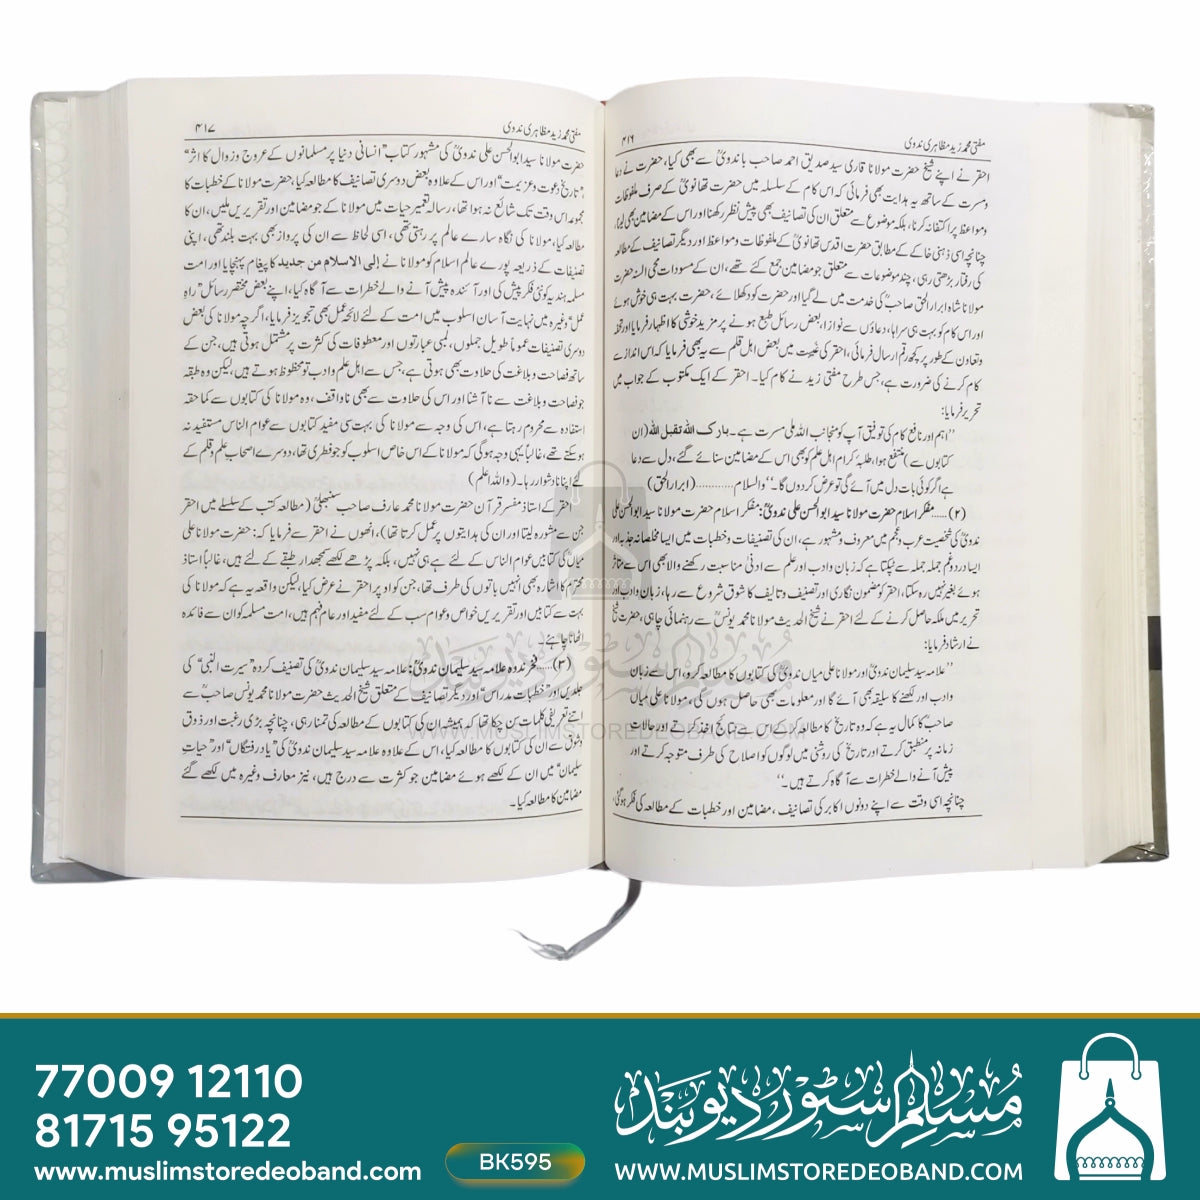 مفتی محمد زید مظاہری ندوی
۴۱۶
احقر نے اپنے شیخ حضرت مولانا قاری سید صدیق احمد صاحب باندویؒ سے بھی کیا، حضرت نے دعا
ومسرت کے ساتھ یہ ہدایت بھی فرمائی کہ اس کام کے سلسلہ میں حضرت تھانویؒ کے صرف ملفوظات
ومواعظ پر اکتفا نہ کرنا، بلکہ موضوع سے متعلق ان کی تصانیف بھی پیش نظر رکھنا اور اس کے مضامین بھی لینا،
چنانچہ اسی ذہنی خاکے کے مطابق حضرت اقدس تھانویؒ کے ملفوظات ومواعظ اور دیگر تصانیف کے مطالعہ
کی رفتار بڑھتی رہی، چند موضوعات سے متعلق جو مضامین جمع کئے تھے، ان کے مسودات محی السنۃ حضرت
مولانا شاہ ابرار الحق صاحبؒ کی خدمت میں لے گیا اور حضرت کو دکھلائے، حضرت بہت ہی خوش ہوئے
اور اس کام کو بہت ہی سراہا، دعاؤں سے نوازا، بعض رسائل طبع ہونے پر مزید خوشی کا اظہار فرمایا اور تحفہ
وتعاون کے طور پر کچھ رقم ارسال فرمائی، احقر کی غیبت میں بعض اہل قلم سے یہ بھی فرمایا کہ اس انداز سے
کام کرنے کی ضرورت ہے، جس طرح مفتی زید نے کام کیا۔ احقر کے ایک مکتوب کے جواب میں
تحریر فرمایا:
’’اہم اور نافع کام کی توفیق آپ کو منجانب اللہ ملی مسرت ہے۔ بارک اللہ تقبل اللہ (ان
کتابوں سے) منتفع ہوا، طلبۂ کرام اہل علم کو بھی اس کے مضامین سنائے گئے، دل سے دعا
ہے اگر کوئی بات دل میں آئے گی تو عرض کردوں گا۔‘‘ والسلام ............ (ابرار الحق)
(۲) ..... مفکر اسلام حضرت مولانا سید ابوالحسن علی ندویؒ: مفکر اسلام حضرت مولانا سید ابوالحسن علی
ندویؒ کی شخصیت عرب وعجم میں معروف ومشہور ہے، ان کی تصنیفات وخطبات میں ایسا مخلصانہ جذبہ اور
ایسا درد وغم جملہ جملہ سے ٹپکتا ہے کہ زبان وادب اور علم سے ادنیٰ مناسبت رکھنے والا بھی اس سے متاثر
ہوئے بغیر نہیں رہ سکتا، احقر کو مضمون نگاری اور تصنیف وتالیف کا شوق شروع سے رہا، زبان وادب اور
تحریر میں ملکہ حاصل کرنے کے لئے احقر نے شیخ الحدیث مولانا محمد یونسؒ سے رہنمائی چاہی، حضرت شیخ
نے ارشاد فرمایا:
’’علامہ سید سلیمان ندویؒ اور مولانا علی میاں ندویؒ کی کتابوں کا مطالعہ کرو، اس سے زبان
وادب اور لکھنے کا سلیقہ بھی آئے گا اور معلومات بھی حاصل ہوں گی، مولانا علی میاں
صاحبؒ کا کمال یہ ہے کہ وہ تاریخ کا مطالعہ کرکے اس سے نتائج اخذ کرتے اور حالات
زمانہ پر منطبق کرتے اور تاریخ کی روشنی میں لوگوں کو اصلاح کی طرف متوجہ کرتے اور
پیش آنے والے خطرات سے آگاہ کرتے ہیں۔‘‘
چنانچہ اسی وقت سے اپنے دونوں اکابر کی تصانیف، مضامین اور خطبات کے مطالعہ کی فکر ہوگئی،
مفتی محمد زید مظاہری ندوی
۴۱۷
حضرت مولانا سید ابوالحسن علی ندویؒ کی مشہور کتاب ”انسانی دنیا پر مسلمانوں کے عروج وزوال کا اثر“
”تاریخ دعوت وعزیمت“ اور اس کے علاوہ بعض دوسری تصانیف کا مطالعہ کیا، حضرت مولانا کے خطبات کا
مجموعہ اس وقت تک شائع نہ ہوا تھا، رسالہ تعمیر حیات میں مولانا کے جو مضامین اور تقریریں ملیں، ان کا
مطالعہ کیا، مولانا کی نگاہ سارے عالم پر رہتی تھی، اسی لحاظ سے ان کی پرواز بھی بہت بلند تھی، اپنی
تصنیفات کے ذریعہ پورے عالم اسلام کو مولانا نے إلی الاسلام من جدید کا پیغام پہنچایا اور امت
مسلمہ ہندیہ کو نئی فکر پیش کی اور آئندہ پیش آنے والے خطرات سے آگاہ کیا، اپنے بعض مختصر رسائل ”راہِ
عمل“ وغیرہ میں نہایت آسان اسلوب میں امت کے لئے لائحہ عمل بھی تجویز فرمایا، اگرچہ مولانا کی بعض
دوسری تصنیفات عموماً طویل جملوں، لمبی عبارتوں اور معطوفات کی کثرت پر مشتمل ہوتی ہیں، جن کے
ساتھ فصاحت وبلاغت کی حلاوت بھی ہوتی ہے، جس سے اہل علم وادب تو محظوظ ہوتے ہیں، لیکن وہ طبقہ
جو فصاحت وبلاغت سے نا آشنا اور اس کی حلاوت سے بھی ناواقف، وہ مولانا کی کتابوں سے کما حقہ
استفادہ سے محروم رہتا ہے، اس کی وجہ سے مولانا کی بہت سی مفید کتابوں سے عوام الناس مستفید نہ
ہوسکتے تھے، غالباً یہی وجہ ہوگی کہ مولانا کے اس خاص اسلوب کو جو فطری تھا، دوسرے اصحاب علم وقلم کے
لئے اپنانا دشوار رہا۔ (واللہ اعلم)
احقر کے استاذ مفسر قرآن حضرت مولانا محمد عارف صاحب سنبھلیؒ (مطالعہ کتب کے سلسلے میں احقر
جن سے مشورہ لیتا اور ان کی ہدایتوں پر عمل کرتا تھا)، انھوں نے احقر سے فرمایا کہ: حضرت مولانا علی
میاںؒ کی کتابیں عوام الناس کے لئے ہے ہی نہیں، بلکہ پڑھے لکھے سمجھدار طبقے کے لئے ہیں، غالباً استاذ
محترم کا اشارہ بھی انہیں باتوں کی طرف تھا، جن کو اوپر احقر نے عرض کیا، لیکن واقعہ یہ ہے کہ مولانا کی
بہت سے کتابیں اور تقریریں خواص وعوام سب کے لئے مفید اور عام فہم ہیں، امت مسلمہ کو ان سے فائدہ
اٹھانا چاہئے۔
(۳) ..... فخر ندوہ علامہ سید سلیمان ندویؒ: علامہ سید سلیمان ندویؒ کی تصنیف کردہ ”سیرت النبی“ کی
جلدیں اور ”خطبات مدراس“ اور دیگر تصانیف کے متعلق شیخ الحدیث حضرت مولانا محمد یونس صاحبؒ سے
اتنے تعریفی کلمات سن چکا تھا کہ ہمیشہ ان کی کتابوں کے مطالعہ کی تمنا رہی، چنانچہ بڑی رغبت اور ذوق
وشوق سے ان کی کتابوں کا مطالعہ کیا، اس کے علاوہ علامہ سید سلیمان ندویؒ کی ”یاد رفتگاں“ اور ”حیاتِ
سلیمان“ میں ان کے لکھے ہوئے مضامین جو کثرت سے درج ہیں، نیز معارف وغیرہ میں لکھے گئے
مضامین کا مطالعہ کیا۔
مسلم سٹور دیوبند
WWW.MUSLIMSTOREDEOBAND.COM
77009 12110
81715 95122
www.muslimstoredeoband.com
BK595
مسلم سٹور دیوبند
WWW.MUSLIMSTOREDEOBAND.COM